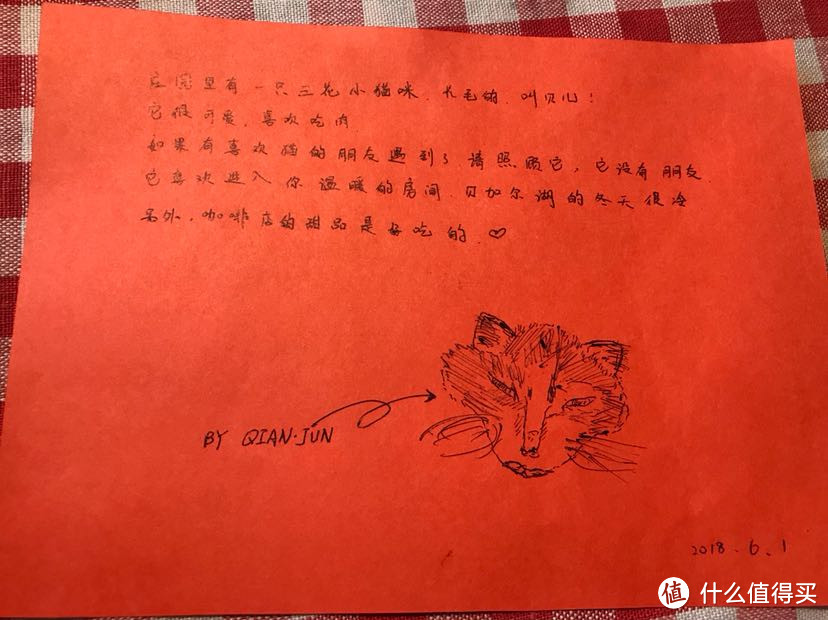 庄园里有一只三花小猫咪、长毛的、叫贝儿!
它很可爱、喜欢吃肉
如果有喜欢猫的朋友遇到了请照顾它,它没有朋友
它喜欢进入你温暖的房间、贝加尔湖的冬天很冷
另外,咖啡店的甜品是好吃的、♡
BY QIAN·JUN
2018.6.1
值 什么值得买